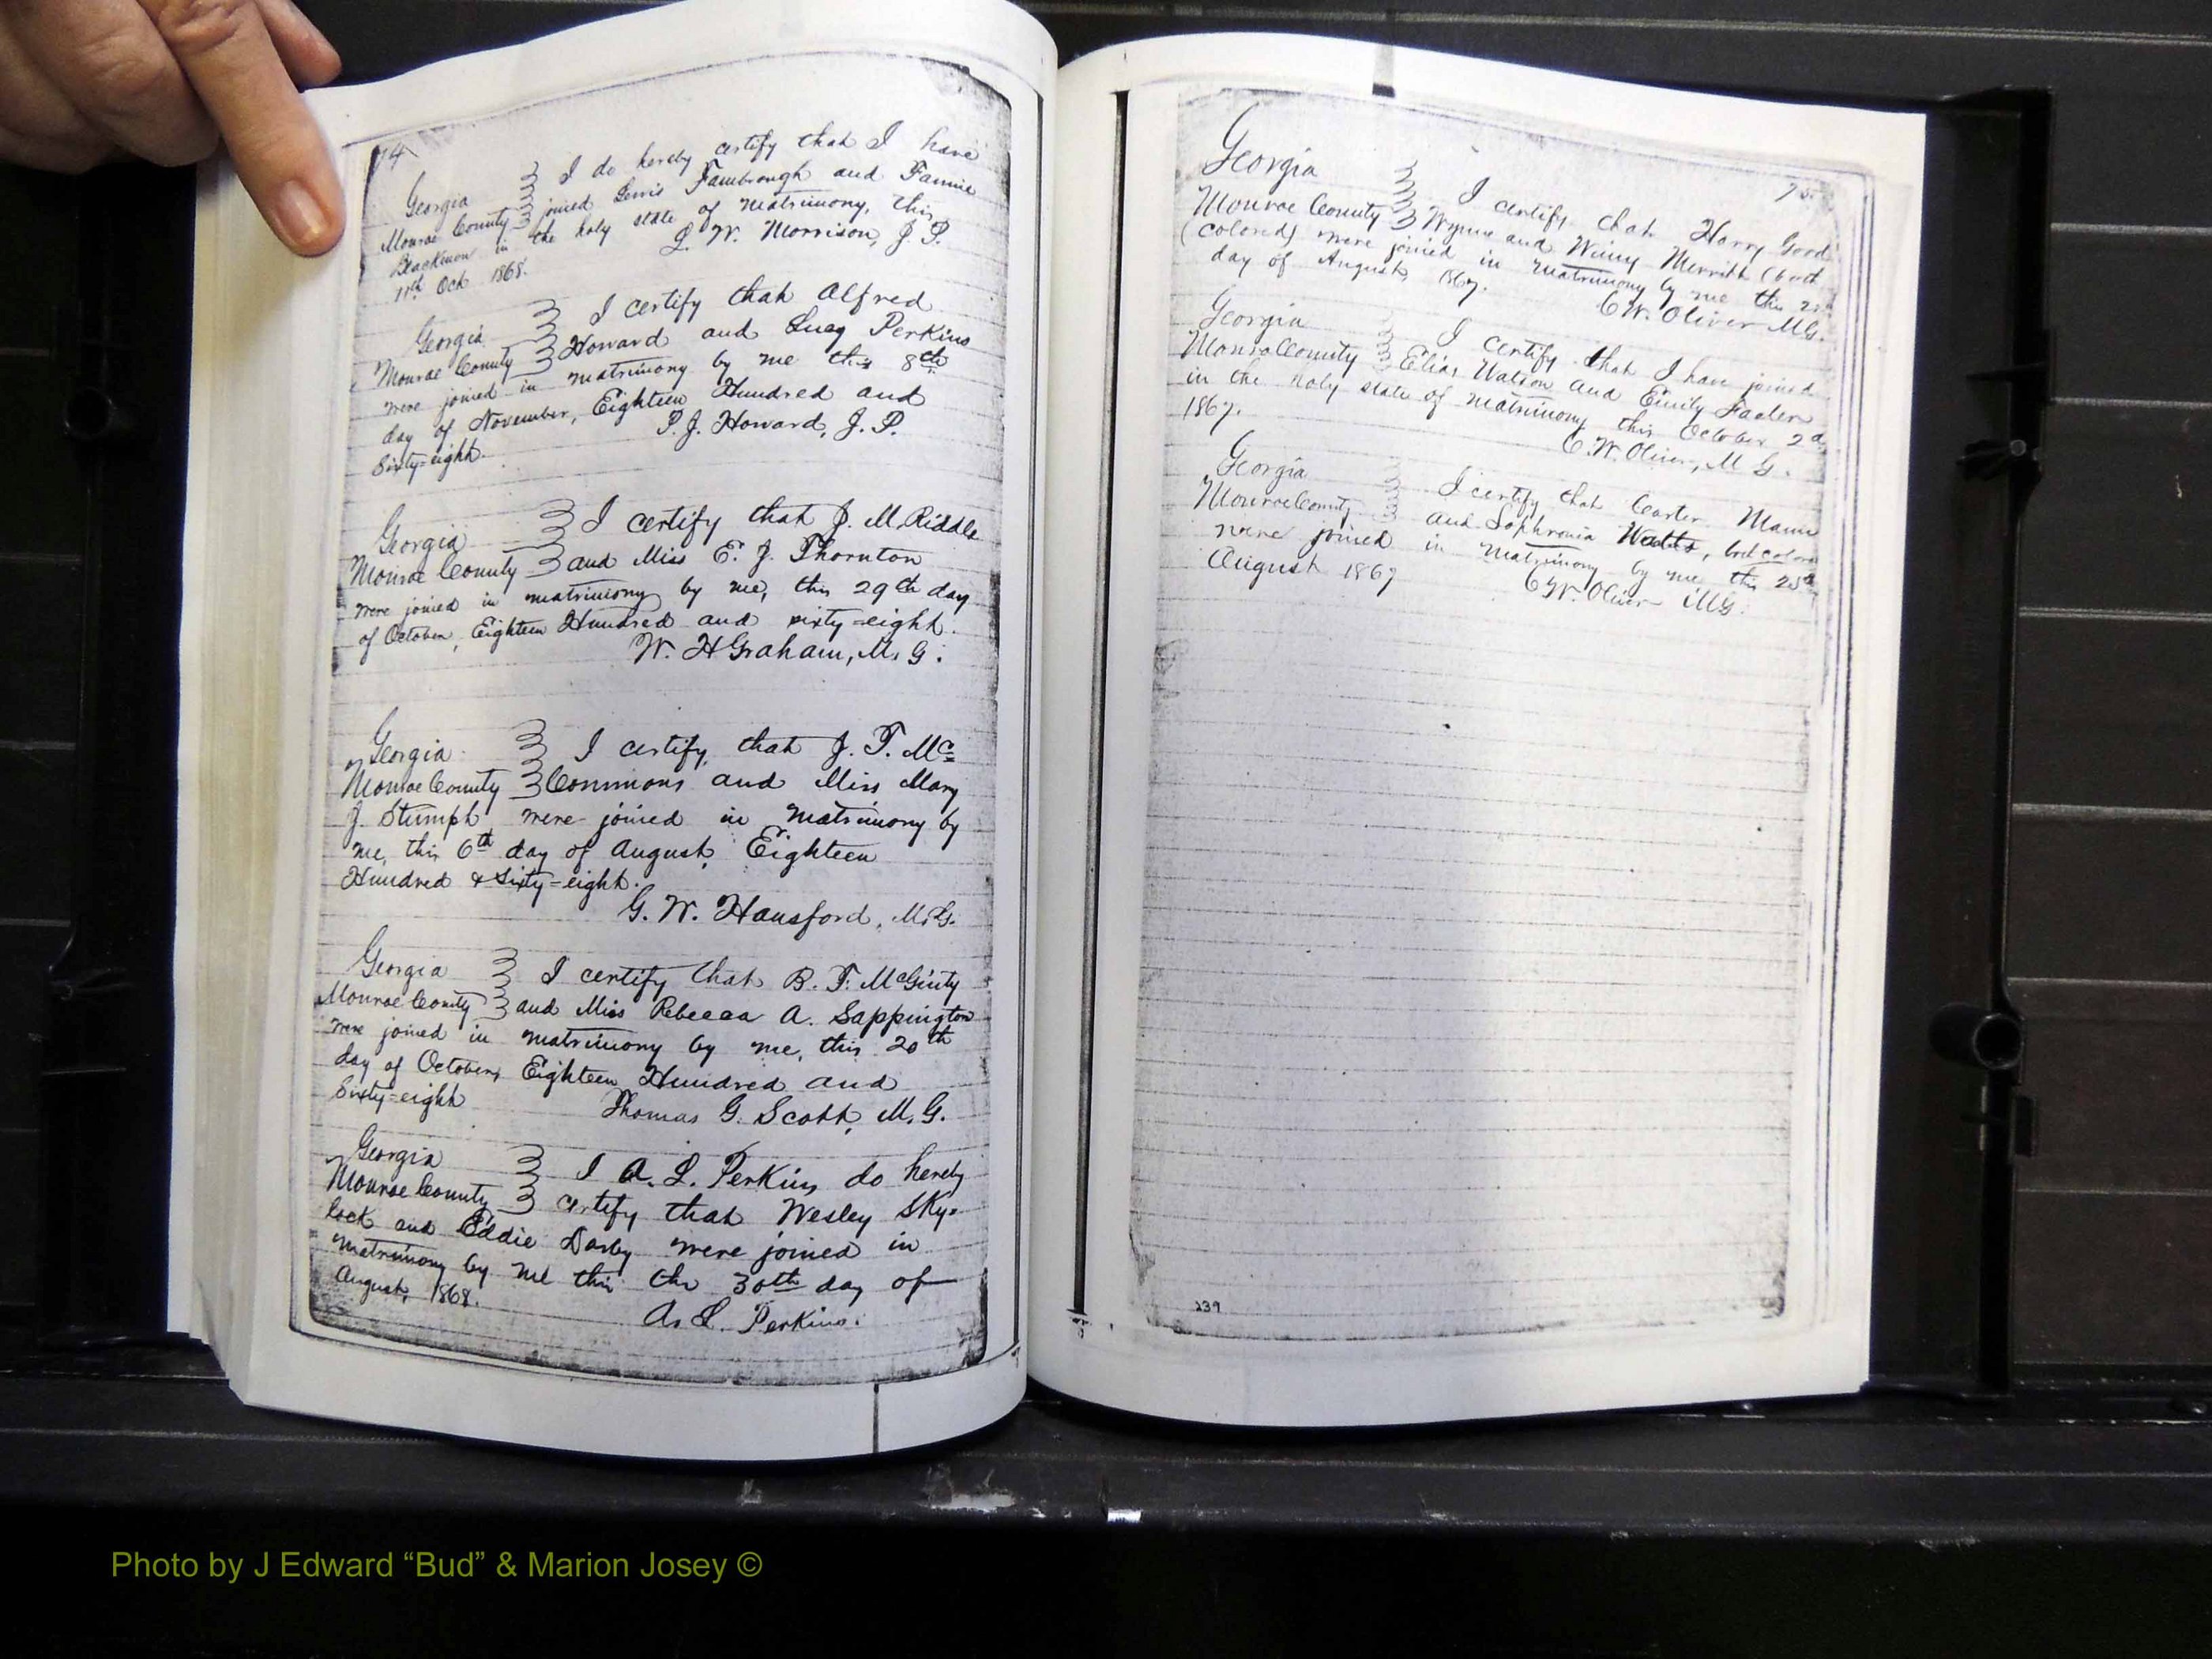 74
Georgia I do hereby certify that I have
Monroe County joined Lewis Fambrough and Fannie
Blackmon in the holy state of matrimony, this
11th Oct 1868. L. W. Morrison, J. P.
Georgia I certify that Alfred
Monroe County Howard and Lucy Perkins
were joined in matrimony by me this 8th
day of November, Eighteen Hundred and
Sixty-eight. P. J. Howard, J. P.
Georgia I certify that J. M. Riddle
Monroe County and Miss E. J. Thornton
were joined in matrimony by me, this 29th day
of October, Eighteen Hundred and sixty-eight.
W. H Graham, M. G.
Georgia I certify, that J. T. Mc
Monroe County Commons and Miss Mary
J. Stumph were joined in matrimony by
me, this 6th day of August, Eighteen
Hundred & Sixty-eight.
G. W. Hansford, M. G.
Georgia I certify that B. T. McGinty
Monroe County and Miss Rebecca A. Sappington
were joined in matrimony by me, this 20th
day of October, Eighteen Hundred and
Sixty-eight Thomas G. Scott, M. G.
Georgia I A. L. Perkins do hereby
Monroe County certify that Wesley Sky-
lock and Eddie Darby were joined in
matrimony by me this the 30th day of
August, 1868.
A. L. Perkins.
75.
Georgia I certify that Harry Good
Monroe County Wynne and Winny Merritt (both
(colored) were joined in matrimony by me this
day of August, 1867.
C W. Oliver M G.
Georgia I certify that I have joined
Monroe County Elias Watson and Emily
in the holy state of matrimony this October 2d
1867.
C. W. Oliver, M G.
Georgia I certify that Carter Mann
Monroe County and Sophronia Watts,
were joined in matrimony by me this 25th
August 1867 C W. Oliver M G.
239
Photo by J Edward “Bud” & Marion Josey ©